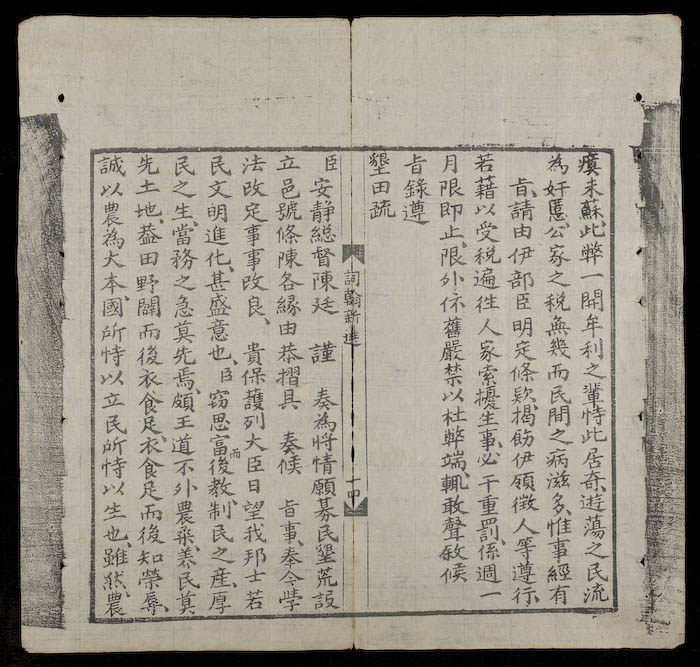 瘼未蘇此弊一開牟利之輩恃此居奇遊蕩之民流
為奸慝公家之税無幾而民間之病滋多惟事經有
旨請由伊部臣明定條欵揭飭伊領徵人等遵行
若藉以受税遍徃人家索擾生事必干重罰係週一
月限即止限外依舊嚴禁以杜弊端輒敢聲敘候
旨錄遵
墾田疏
詞翰新選
十四
臣安靜総督陳廷謹奏為將情願募民墾荒設
立邑號條陳各縁由恭摺具奏候旨事奉今學
法改定事事改良貴保護列大臣日望我邦士若
民文明進化甚盛意也臣窃思富而後教制民之産厚
民之生當務之急莫先焉頗王道不外農桑养民莫
先土地葢田野闢而後衣食足衣食足而後知榮辱
誠以農為大本國所恃以立民所恃以生也雖然農